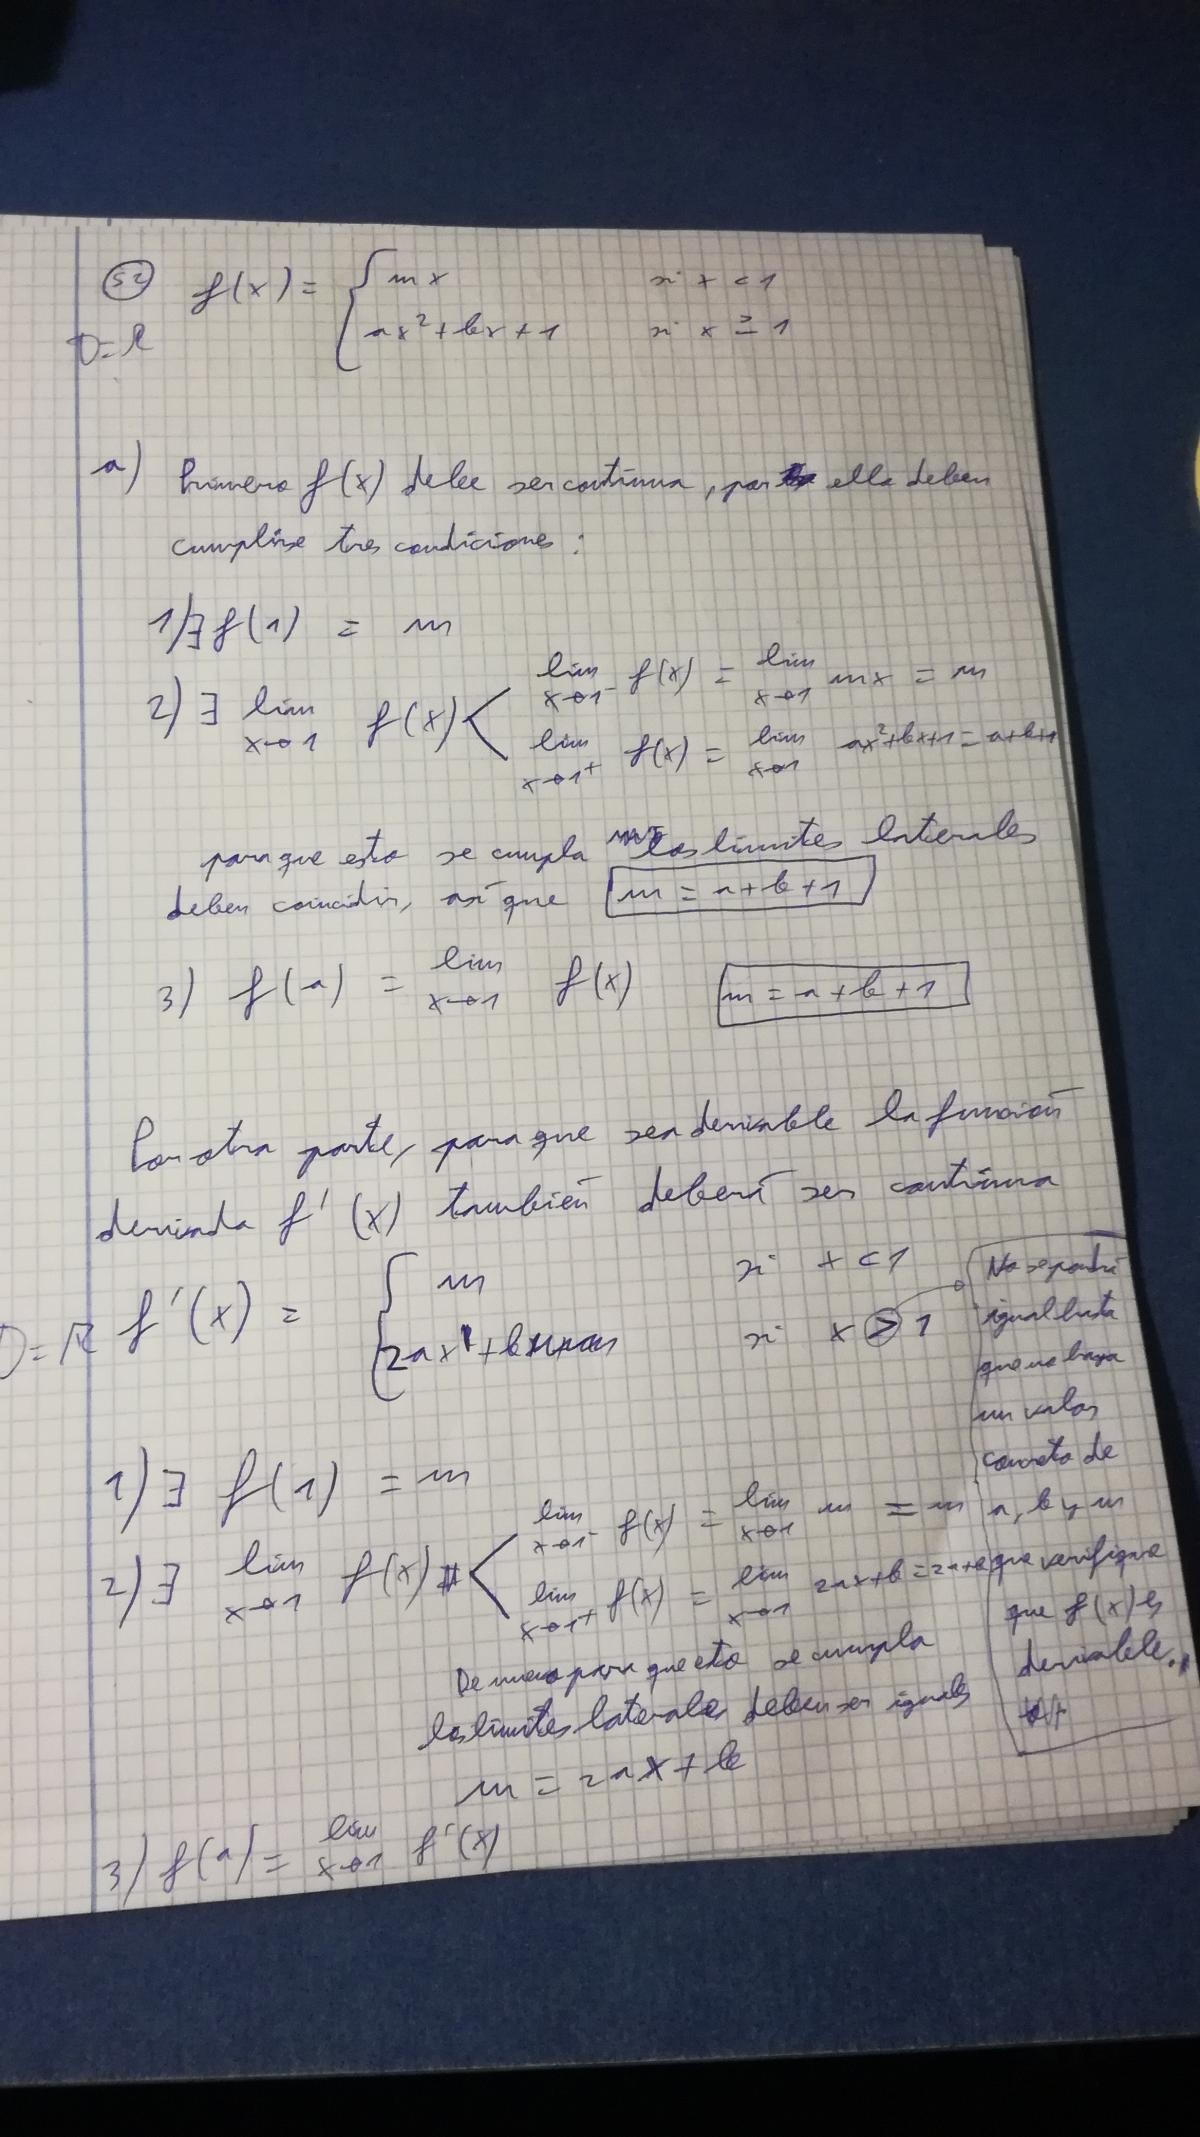 52 f(x) = { mx si x < 1
D = R { ax² + bx + 1 si x ≥ 1
a) Primero f(x) debe ser continua, para ello deben
cumplirse tres condiciones:
1) ∃ f(1) = m
2) ∃ lim x→1 f(x) < lim x→1⁻ f(x) = lim x→1 mx = m
lim x→1⁺ f(x) = lim x→1 ax²+bx+1 = a+b+1
para que esto se cumpla los límites laterales
deben coincidir, así que m = a+b+1
3) f(a) = lim x→1 f(x) m = a+b+1
Por otra parte, para que sea derivable la función
derivada f'(x) también deberá ser continua
f'(x) = { m si x < 1
D = R { 2ax + b si x > 1
No se pondrá
igual hasta
que no haya
un valor
concreto de
a, b y m
que verifique
que f(x) es
derivable.
1) ∃ f(1) = m
2) ∃ lim x→1 f(x) < lim x→1⁻ f(x) = lim x→1 m = m
lim x→1⁺ f(x) = lim x→1 2ax+b = 2a+b
De nuevo para que esto se cumpla
los límites laterales deben ser iguales
m = 2ax + b
3) f(a) = lim x→1 f'(x)